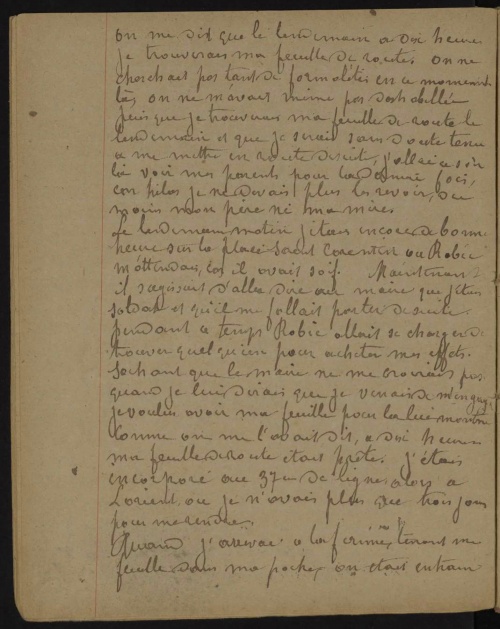 on me dit que le lendemain a dix heures
je trouverais ma feuille de route. On ne
cherchait pas tant de formalités en ce moment
là, on ne m'avait même pas deshabillée
puis que je trouverais ma feuille de route le
lendemain et que je serais sans doute tenu
a me mettre en route desuite, j'allai ce soir
là voir mes parents pour la derniere fois,
car hélas je ne devais plus les revoir, du
moins mon père ni ma mère.
Le lendemain matin j'étais encore de bonne
heure sur la place Saint Corentin ou Robic
m'attendait, car il avait soif. Maintenant
il s'agissait d'aller dire au maire que j'étais
soldat et qu'il me fallait partir desuite
pendant ce temps Robic allait se charger de
trouver quelqu'un pour acheter mes effets.
Sachant que le maire ne me croirait pas
quand je lui dirais que je venais de m'engager
je voulus avoir ma feuille pour la lui montrer
Comme on me l'avait dit, a dix heures
ma feuille de route etait prête. J'étais
incorporé au 37e de ligne alors a
Lorient ou je n'avais plus que trois jours
pour me rendre.
Quand j'arrivai a la ferme, tenant ma
feuille dans ma poche, on etait entrain